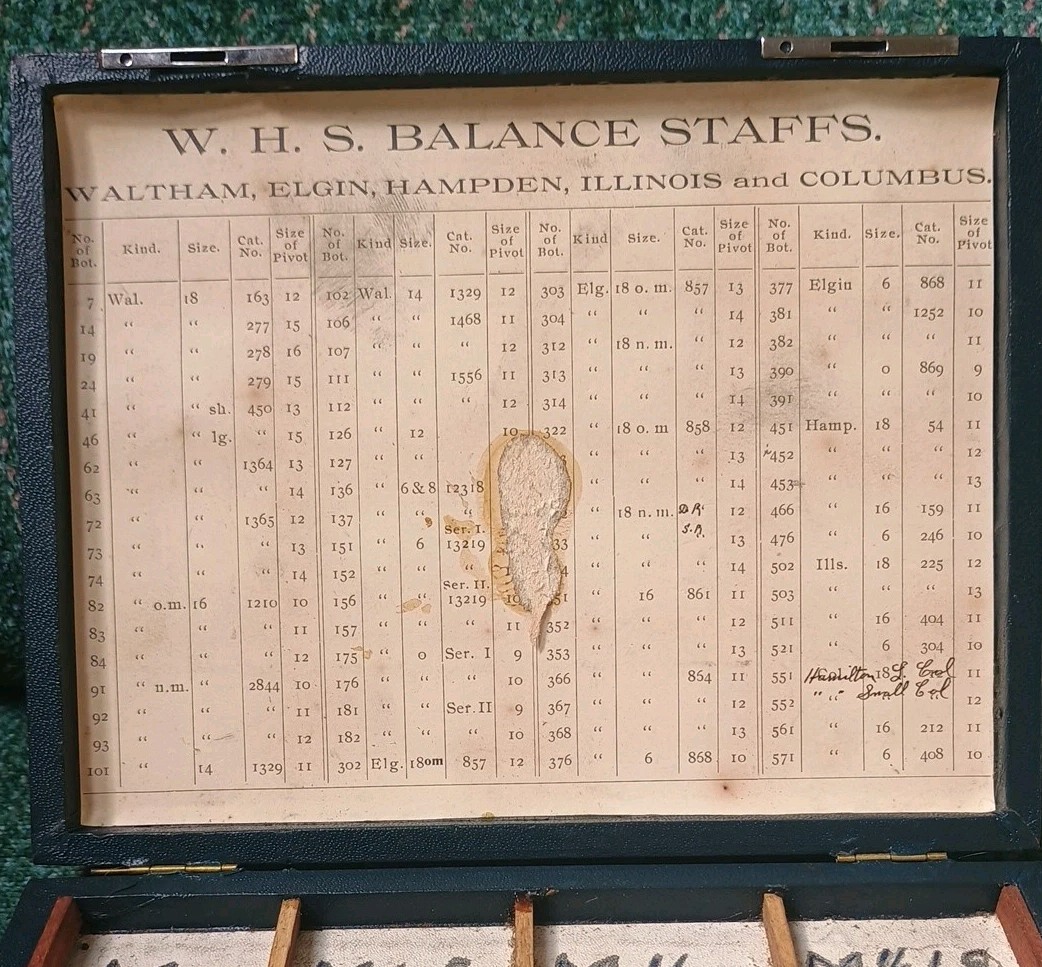 W. H. S. BALANCE STAFFS.
WALTHAM, ELGIN, HAMPDEN, ILLINOIS and COLUMBUS.
No. of Bot. Kind. Size. Cat. No. Size of Pivot No. of Bot. Kind Size. Cat. No. Size of Pivot No. of Bot. Kind Size. Cat. No. Size of Pivot No. of Bot. Kind. Size. Cat. No. Size of Pivot
7 Wal. 18 163 12 102 Wal. 14 1329 12 303 Elg. 18 o. m. 857 13 377 Elgin 6 868 11
14 “ “ 277 15 106 “ “ 1468 11 304 “ “ “ 14 381 “ “ 1252 10
19 “ “ 278 16 107 “ “ “ 12 312 “ 18 n. m. “ 12 382 “ “ “ 11
24 “ “ 279 15 111 “ “ 1556 11 313 “ “ “ 13 390 “ o 869 9
41 “ “ sh. 450 13 112 “ “ “ 12 314 “ “ “ 14 391 “ “ “ 10
46 “ “ lg. “ 15 126 “ 12 10 322 “ 18 o. m 858 12 451 Hamp. 18 54 11
62 “ “ 1364 13 127 “ “ “ “ “ 13 452 “ “ “ 12
63 “ “ “ 14 136 “ 6 & 8 12318 “ “ “ 14 453 “ “ “ 13
72 “ “ 1365 12 137 “ “ “ “ 18 n. m. D.R. 12 466 “ 16 159 11
73 “ “ “ 13 151 “ 6 Ser. I. 13219 33 “ “ S.R. 13 476 “ 6 246 10
74 “ “ “ 14 152 “ “ “ “ “ “ 14 502 Ills. 18 225 12
82 “ o.m. 16 1210 10 156 “ “ Ser. II. 13219 10 “ 16 861 11 503 “ “ “ 13
83 “ “ “ 11 157 “ “ “ 11 352 “ “ “ 12 511 “ 16 404 11
84 “ “ “ 12 175 “ o Ser. I 9 353 “ “ “ 13 521 “ 6 304 10
91 “ n.m. “ 2844 10 176 “ “ “ 10 366 “ “ 864 11 551 Hamilton 18 L. Col 11
92 “ “ “ 11 181 “ “ Ser. II 9 367 “ “ “ 12 552 “ “ Small Col 12
93 “ “ “ 12 182 “ “ “ 10 368 “ “ “ 13 561 “ 16 212 11
101 “ 14 1329 11 302 Elg. 18om 857 12 376 “ 6 868 10 571 “ 6 408 10